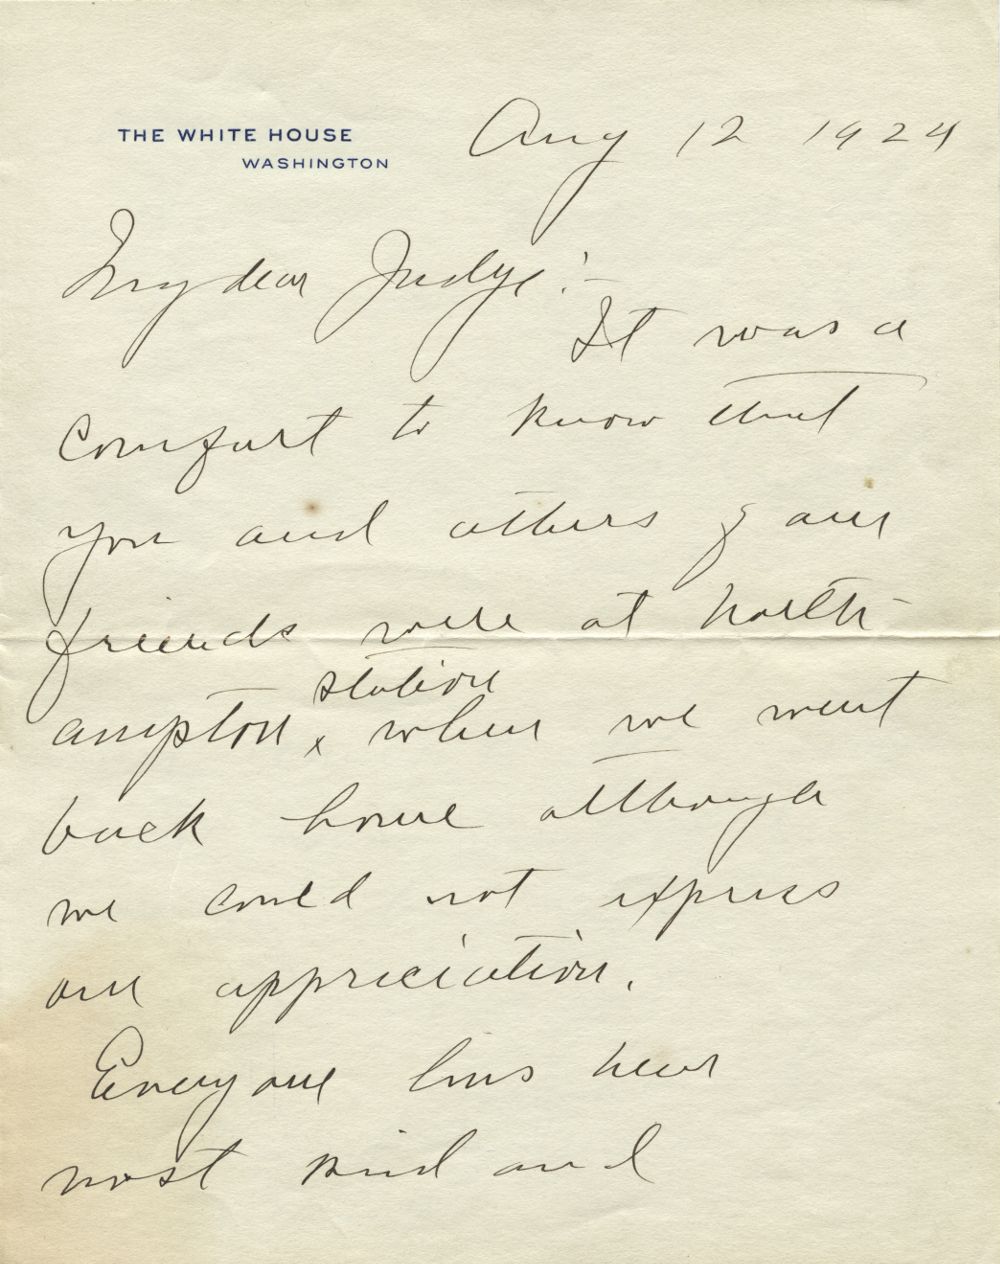 THE WHITE HOUSE
WASHINGTON
Aug 12 1924
My dear Judge:-
It was a
comfort to know that
you and others of our
friends were at North-
station
ampton x when we went
back home although
we could not express
our appreciation.
Everyone has been
most kind and